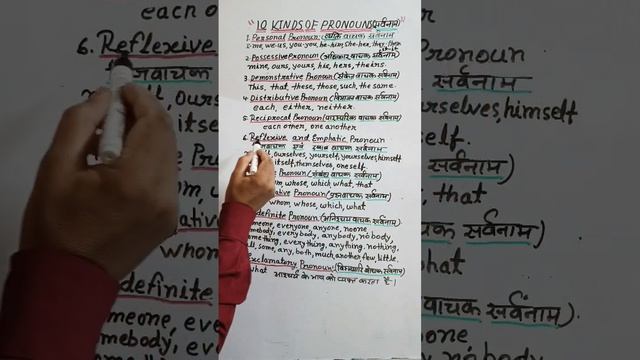 "10 KINDS OF PRONOUNS (सर्वनाम)"
1. Personal Pronoun: (व्यक्ति वाचक सर्वनाम)
I-me, we-us, you-you, he-him, she-her, they-them
2. Possessive Pronoun (अधिकार वाचक सर्वनाम)
mine, ours, yours, his, hers, theirs.
3. Demonstrative Pronoun (संकेत वाचक सर्वनाम)
This, that, these, those, such, the same.
4. Distributive Pronoun (विभाग वाचक सर्वनाम)
each, either, neither.
5. Reciprocal Pronoun (पारस्परिक वाचक सर्वनाम)
each other, one another
6. Reflexive and Emphatic Pronoun
वाचक एवं वाचक सर्वनाम
ourselves, yourself, yourselves, himself
itself, themselves, oneself.
Pronoun (संबंध वाचक सर्वनाम)
whom, whose, which, what, that
Pronoun (प्रश्नवाचक सर्वनाम)
whom, whose, which, what
definite Pronoun (अनिश्चय वाचक सर्वनाम)
someone, everyone, anyone, none
somebody, everybody, anybody, nobody
something, everything, anything, nothing,
all, some, any, both, much, another, few, little.
Exclamatory Pronoun (विस्मयादि बोधक सर्वनाम)
what आश्चर्य के भाव को व्यक्त करता है।